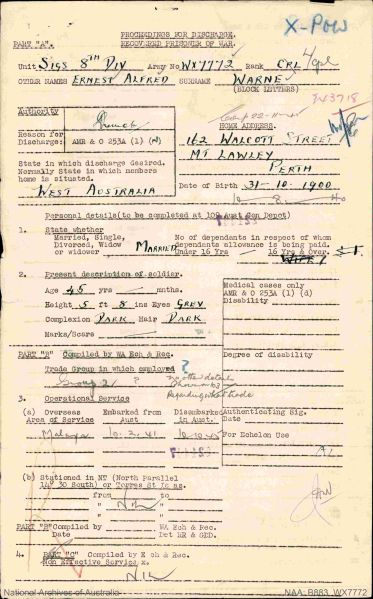 X-POW
PROCEEDINGS FOR DISCHARGE.
PART "A". RECOVERED PRISONER OF WAR.
Unit SIGS 8TH DIV Army No WX7772 Rank CPL
OTHER NAMES ERNEST ALFRED SURNAME WARNE
(BLOCK LETTERS)
Authority
Reason for Discharge: AMR & O 253A (1) (
HOME ADDRESS.
162 WALCOTT STREET
MT LAWLEY
PERTH
State in which discharge desired.
Normally State in which members
home is situated.
WEST AUSTRALIA
Date of Birth 31-10-1900
Personal details(to be completed at Depot)
1. State whether
Married, Single,
Divorced, Widow
or widower MARRIED
No of dependents in respect of whom
dependants allowance is being paid.
Under 16 Yrs - 16 Yrs & Over
WIFE 1
2. Present description of soldier.
Age 45 yrs mnths.
Height 5 ft 8 ins Eyes GREY
Complexion DARK Hair DARK
Marks/Scars
Medical cases only
AMR & O 253A (1) (d)
Disability
PART "B" Compiled by WA Ech & Rec.
Trade Group in which employed ?
Group 2
no other details
Degree of disability
3. Operational Service
(a) Overseas Area of Service Embarked from Aust Disembarked in Aust.
Malaya 10.2.41
Authenticating Sig.
Date
For Echelon Use
(b) Stationed in NT (North Parallel
14° 30 South) or Torres St Is as.
from to
" "
" "
Nil
PART "B" Compiled by WA Ech & Rec.
Date Det WR & GDD.
4. PART "C" Compiled by Ech & Rec.
Non Effective Service
Nil
National Archives of Australia NAA: B883, WX7772